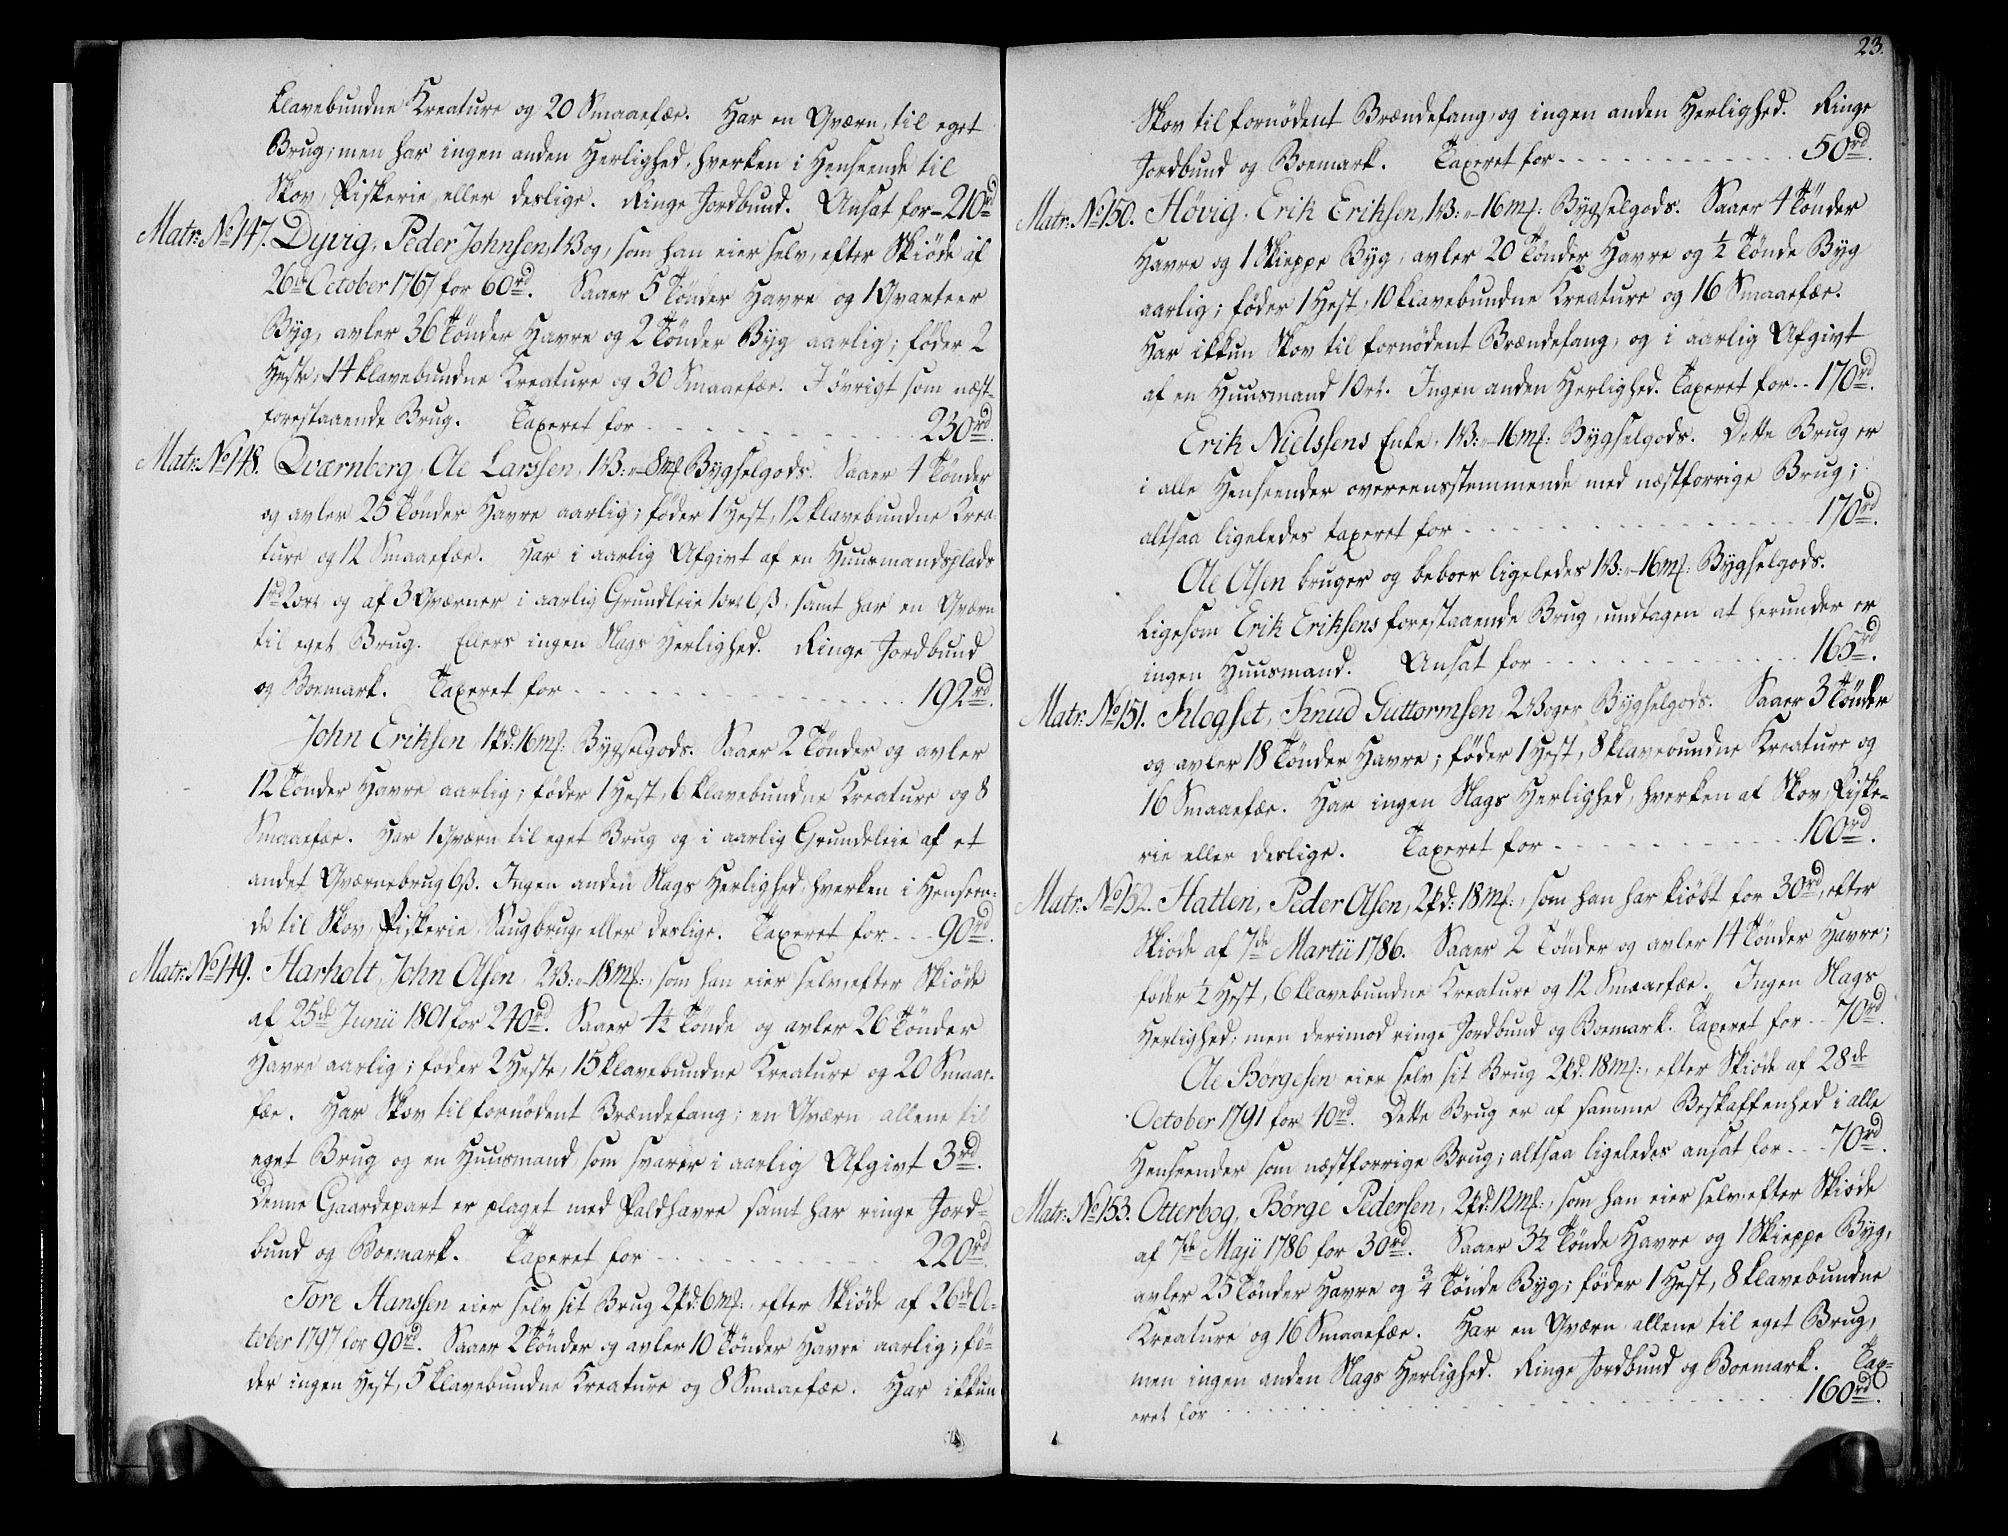 klavebundne Kreature og 20 Smaaefæe. Har en Qværn, til eget
Brug; men har ingen anden Herlighed, hverken i Henseende til
Skov, Fiskerie, eller deslige. Ringe Jordbund. Ansat for - 210 rd
Matr: No 147. Dyvig, Peder Johnsen, 1 Vog, som han eier selv, efter Skiöde af
26de October 1767 for 60 rd. Saaer 5 Tönder Havre og 1 Qvarteer
Byg, avler 36 Tönder Havre og 2 Tönder Byg aarlig; föder 2
Heste, 14 klavebundne Kreature og 30 Smaaefæe. I övrigt som næst-
forestaaende Brug. Taxeret for - - - 230 rd.
Matr: No 148. Qværnberg, Ole Larssen, 1 V: „ - 8 mk Bygselgods. Saaer 4 Tönder
og avler 25 Tönder Havre aarlig; föder 1 Hest, 12 klavebundne Krea-
ture og 12 Smaaefæe. Har i aarlig Afgivt af en Huusmandsplads
1 rd 2 ort og af 3 Qværner i aarlig Grundleie 1 ort 6 ß, samt har en Qværn
til eget Brug. Ellers ingen Slags Herlighed. Ringe Jordbund
og Boemark. Taxeret for - - - 192 rd.
John Eriksen, 1 pd: 16 mk: Bygselgods. Saaer 2 Tönder og avler
12 Tönder Havre aarlig; föder 1 Hest, 6 klavebundne Kreature og 8
Smaaefæe. Har 1 Qværn til eget Brug og i aarlig Grundeleie af et
andet Qværnebrug 6 ß. Ingen anden Slags Herlighed, hverken i Henseen-
de til Skov, Fiskerie, Saugbrug, eller deslige. Taxeret for - - - 90 rd.
Matr: No 149. Harholt, John Olsen, 2 V: „ - 18 mk:, som han eier selv, efter Skiöde
af 25de Junii 1801 for 240 rd. Saaer 4½ Tönde og avler 26 Tönder
Havre aarlig; föder 2 Heste, 15 klavebundne Kreature og 20 Smaae-
fæe. Har Skov til fornödent Brændefang; en Qværn allene til
eget Brug og en Huusmand, som svarer i aarlig Afgivt 3 rd.
Denne Gaardepart er plaget med Faldhavre samt har ringe Jord-
bund og Boemark. Taxeret for - - - 220 rd.
Tore Hanssen eier selv sit Brug 2 pd: 6 mk:, efter Skiöde af 26de O-
ctober 1797 for 90 rd. Saaer 2 Tönder og avler 10 Tönder Havre aarlig; fö-
der ingen Hest, 5 klavebundne Kreature og 8 Smaaefæe. Har ikkun
23.
Skov til fornödent Brændefang, og ingen anden Herlighed. Ringe
Jordbund og Boemark. Taxeret for - - - 50 rd.
Matr: No 150. Hövig, Erik Eriksen, 1 V: „ - 16 mk: Bygselgods. Saaer 4 Tönder
Havre og 1 Skieppe Byg, avler 20 Tönder Havre og ½ Tönde Byg
aarlig; föder 1 Hest, 10 klavebundne Kreature og 16 Smaaefæe.
Har ikkun Skov til fornödent Brændefang, og i aarlig Afgivt
af en Huusmand 1 Ort. Ingen anden Herlighed. Taxeret for - - 170 rd.
Erik Nielssens Enke, 1 V: „ - 16 mk: Bygselgods. Dette Brug er
i alle Henseender overeensstemmende med næstforrige Brug;
altsaa ligeledes taxeret for - - - 170 rd.
Ole Olsen bruger og beboer ligeledes 1 V: „ - 16 mk: Bygselgods.
Ligesom Erik Eriksens forestaaende Brug, undtagen at herunder er
ingen Huusmand. Ansat for - - - 165 rd.
Matr: No 151. Klogset, Knud Guttormsen, 2 Voger Bygselgods. Saaer 3 Tönder
og avler 18 Tönder Havre; föder 1 Hest, 8 klavebundne Kreature og
16 Smaaefæe. Har ingen Slags Herlighed, hverken af Skov, Fiske-
rie eller deslige. Taxeret for - - - 100 rd.
Matr: No 152. Hatlen, Peder Olsen, 2 pd: 18 mk:, som han har kiöbt for 30 rd, efter
Skiöde af 7de Martii 1786. Saaer 2 Tönder og avler 14 Tönder Havre;
föder ½ Hest, 6 klavebundne Kreature og 12 Smaaefæe. Ingen Slags
Herlighed; men derimod ringe Jordbund og Boemark. Taxeret for - - 70 rd.
Ole Börgesen eier selv sit Brug 2 pd. 18 mk:, efter Skiöde af 28de
October 1791 for 40 rd. Dette Brug er af samme Beskaffenhed i alle
Henseender som næstforrige Brug; altsaa ligeledes ansat for - - - 70 rd.
Matr: No 153. Otterbog, Börge Pedersen, 2 pd: 12 mk:, som han eier selv, efter Skiöde
af 7de Maji 1786 for 30 rd. Saaer 3½ Tönde Havre og 1 Skieppe Byg,
avler 25 Tönder Havre og ¾ Tönde Byg; föder 1 Hest, 8 klavebundne
Kreature og 16 Smaaefæe. Har en Qværn allene til eget Brug,
men ingen anden Slags Herlighed. Ringe Jordbund og Boemark. Tax-
eret for - - - 160 rd.